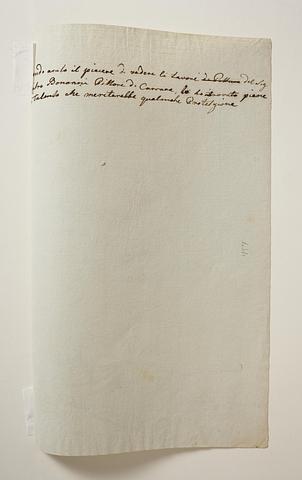 ndo avuto il piacere di vedere le Lavori di Pittura del Sig
Bonanni Pittore di Carrara, lo ho trovato pieno
talento che meriterebbe qualunche Protezione